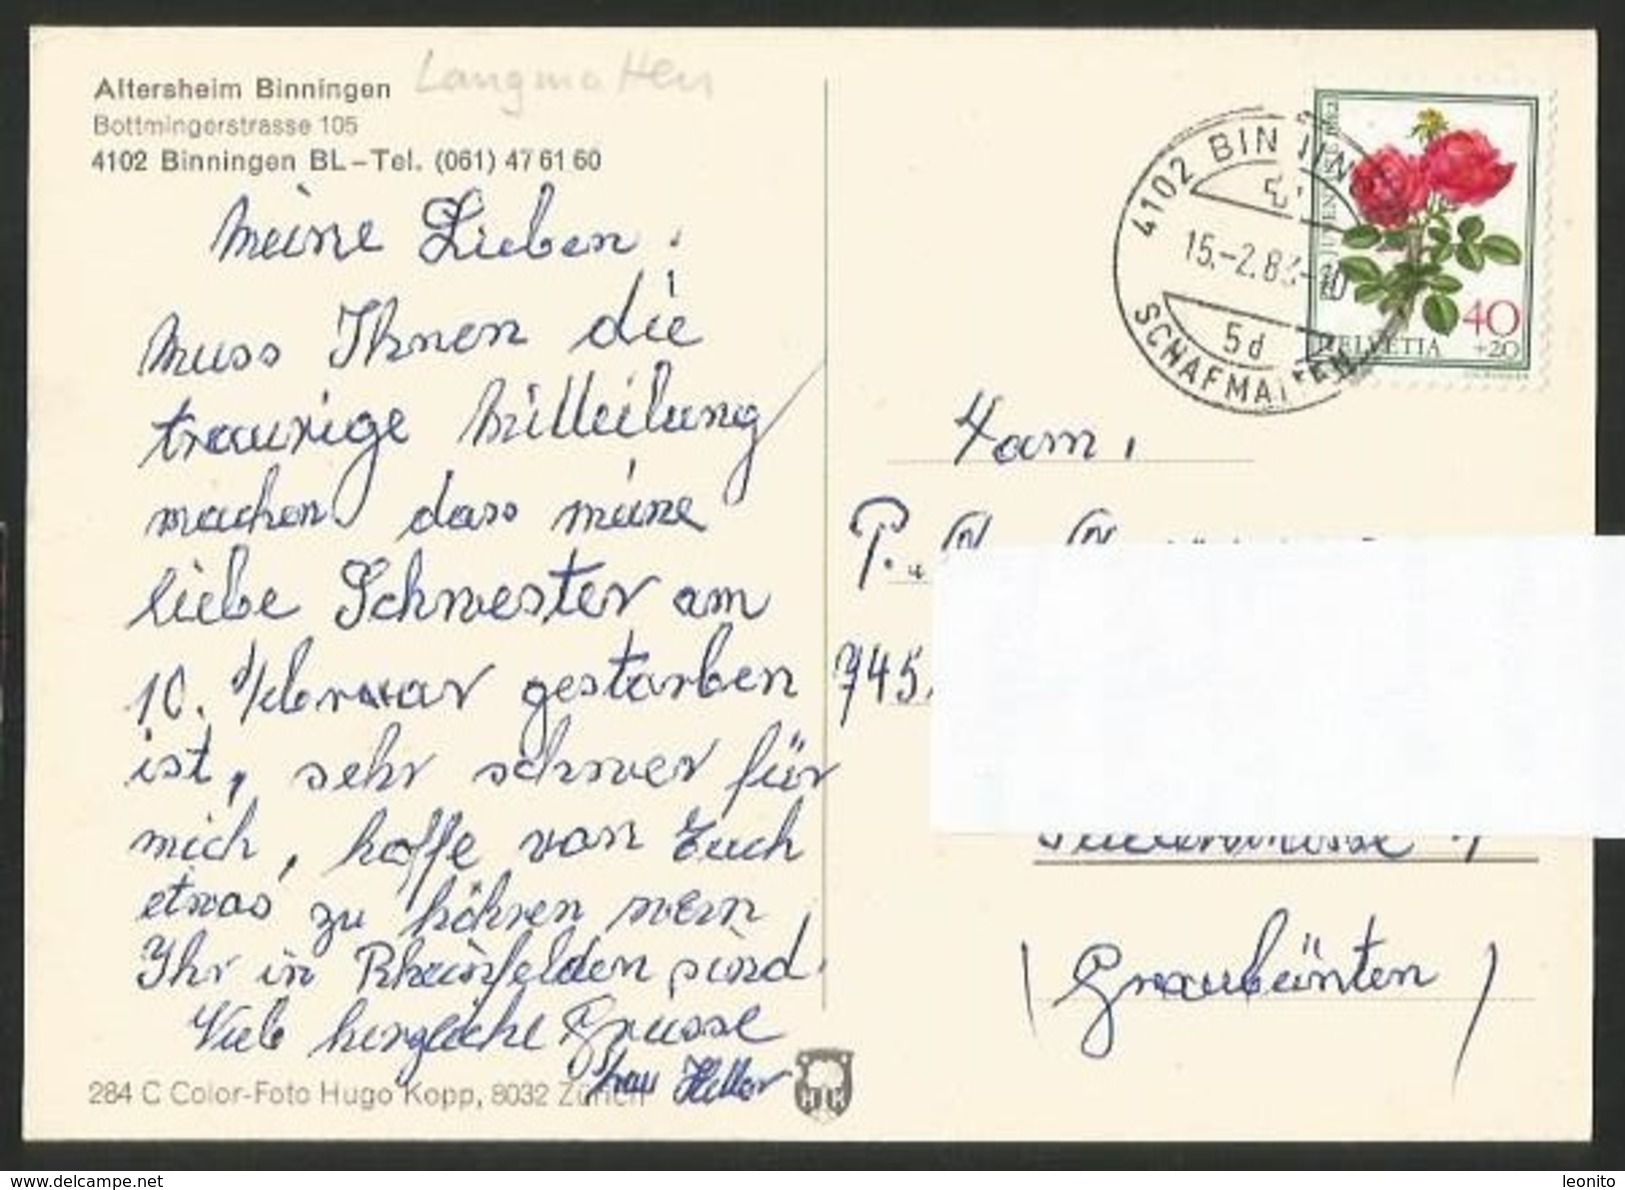 Altersheim Binningen Langmatten
Bottmingerstrasse 105
4102 Binningen BL – Tel. (061) 47 61 60
Meine Lieben!
Muss Ihnen die
traurige Mitteilung
machen dass meine
liebe Schwester am
10. Februar gestorben
ist, sehr schwer für
mich, hoffe von Euch
etwas zu höhren wenn
Ihr in Rheinfelden sind.
Viele herzliche Grüsse
Frau Heller
284 C Color-Foto Hugo Kopp, 8032 Zürich
H K
4102 BINNINGEN
15.-2.83-10
5d
SCHAFMATTEN
PRO JUVENTUTE 1982
40
+20
HELVETIA
Fam.
P. u.
745
(Graubünten)
www.delcampe.net
leonito